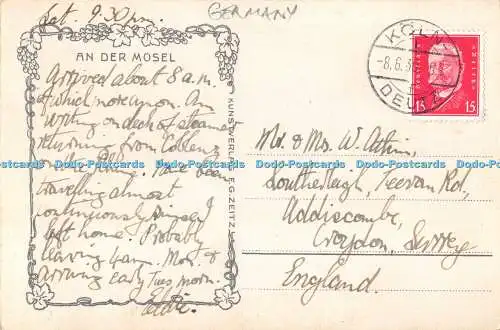 GERMANY
Sat. 9.30 p.m.
AN DER MOSEL
Arrived about 8 a.m.
Am
writing on deck of steamer
returning from Coblenz
on the Rhine. Have been
travelling almost
continuously since I
left home. Probably
leaving 4 a.m. Mon. &
arriving early Tues. morn.
Eddie.
KUNSTVERLAG F.G. ZEITZ
KÖLN
-8.6.3
DEUTZ
15 15
Mr & Mrs W. Atkin,
Southleigh, Teevan Rd,
Addiscombe,
Croydon, Surrey
England.
Dodo-Postcards Dodo-Postcards Dodo-Postcards Dodo-Postcards